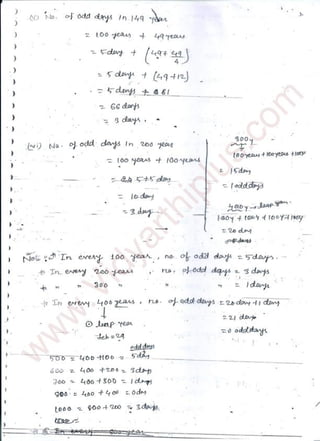 (v) No. of odd days in 149 years
= 100 years + 49 years
= 5 day + (49 + 49/4)
= 5 days + (49 + 12)
= 5 days + 61
= 66 days
= 3 days.
(vi) No. of odd days in 200 years
= 100 years + 100 years
= 5+5 day
= 10 day
= 3 day
300 y
100 years + 100 years + 100 y
= 15 day
= 1 odd days
400 y → leap year.
100 y + 100 y + 100 y + 100 y
= 20 day
Note: * In every 100 year, no. of odd days = 5 days.
* In every 200 years, no. of odd days = 3 days
* " " 300 " " " = 1 days
* In every 400 years, no. of odd days = 20 day + 1 day
leap year
Feb = 29
= 21 days
= 0 odd days
odd days
500 = 400 + 100 = 5 day
600 = 400 + 200 = 3 days
700 = 400 + 300 = 1 days
800 = 400 + 400 = 0 days
1000 = 800 + 200 = 3 days